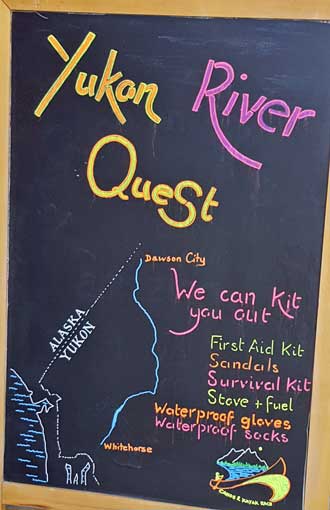 Yukon River
Quest
Dawson City
ALASKA
YUKON
We can Kit
you out
First Aid Kit
Sandals
Survival Kit
Stove + Fuel
Waterproof gloves
Waterproof socks
Whitehorse
CANOE & KAYAK RACE